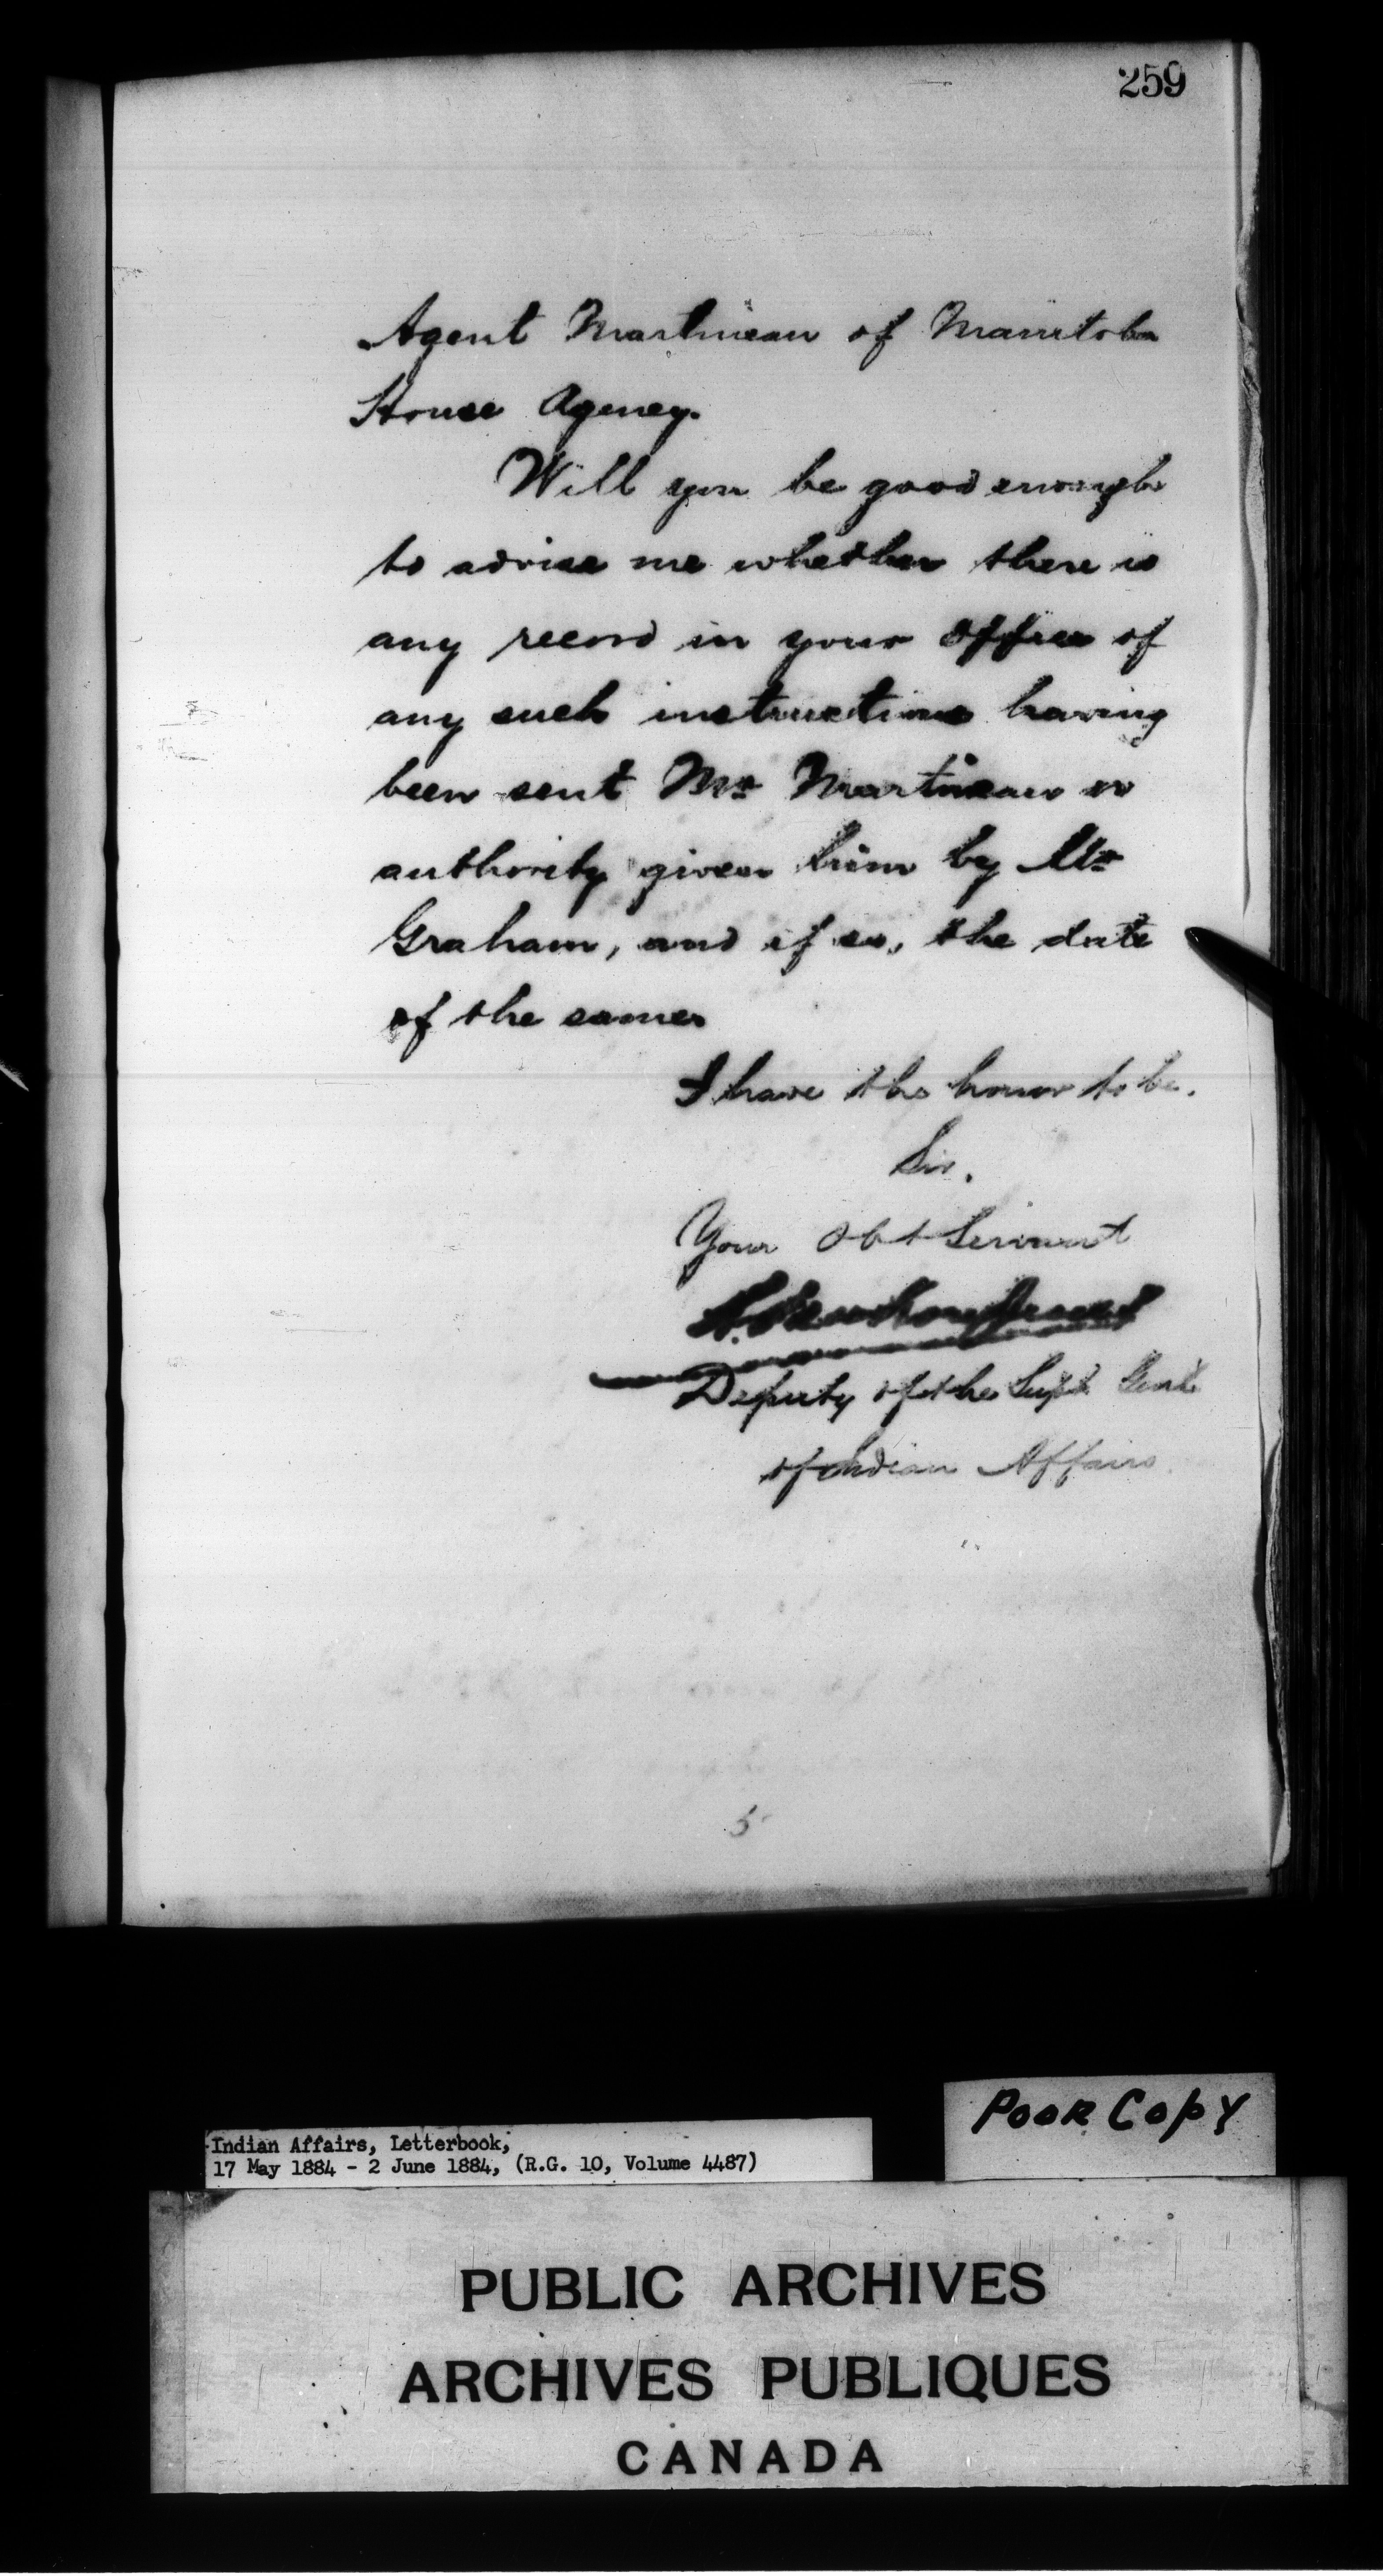 259
Agent Martineau of Manitoba
House Agency.
Will you be good enough
to advise me whether there is
any record in your office of
any such instructions having
been sent Mr Martineau or
authority given him by Mr
Graham, and if so, the date
of the same.
I have the honor to be.
Sir,
Your Obt Servant
Deputy of the Supt Genl
of Indian Affairs.
5
Poor Copy
Indian Affairs, Letterbook,
17 May 1884 - 2 June 1884, (R.G. 10, Volume 4487)
PUBLIC ARCHIVES
ARCHIVES PUBLIQUES
CANADA